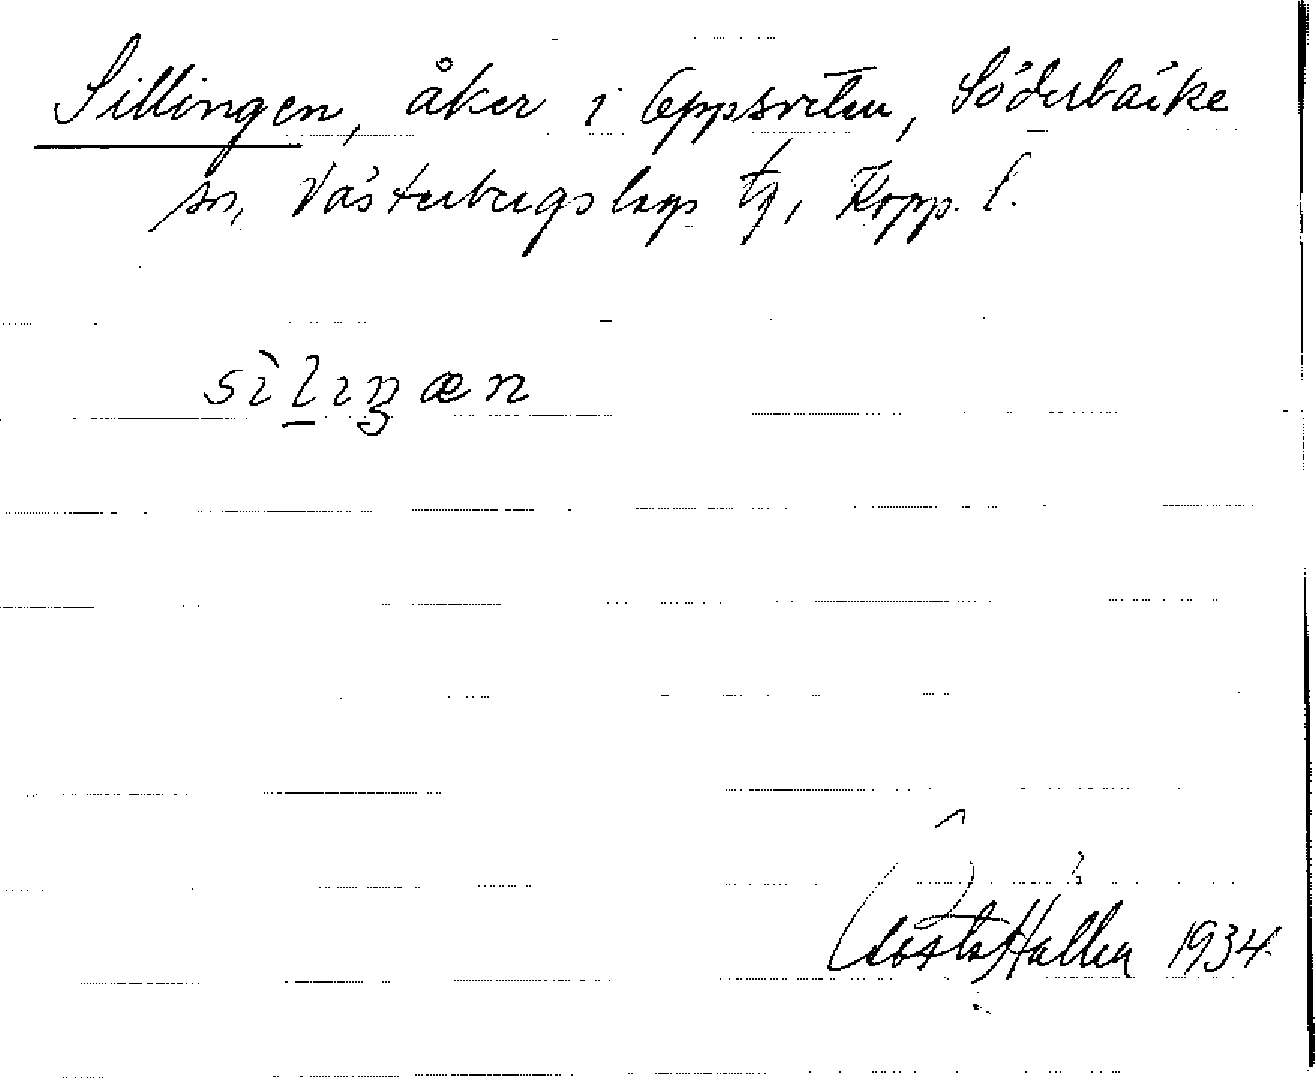 Sillingen, åker i Oppsveten, Söderbärke
sn, Västerbergslags tg, Kopp. l.
sìlıŋæn
Gösta Hallén 1934